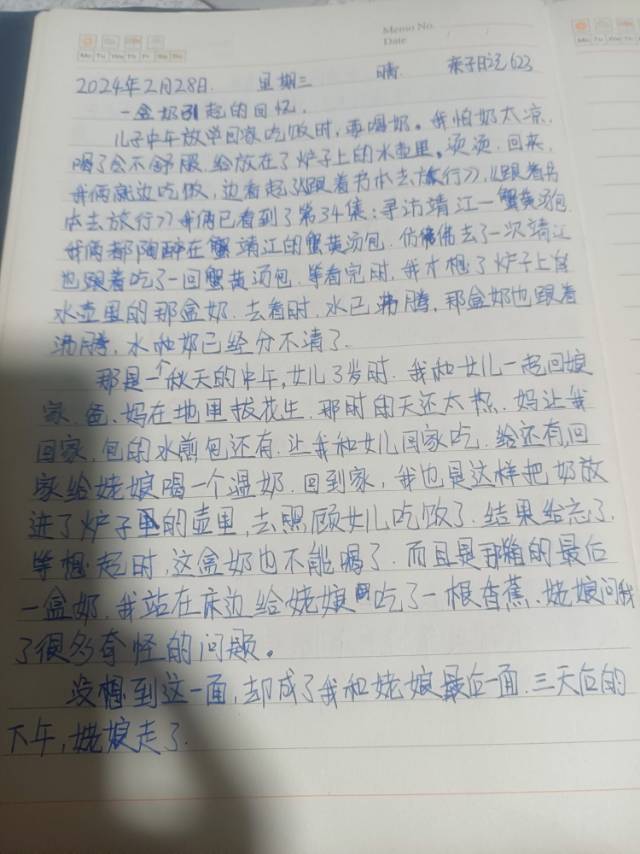 Memo No.
Date
Mo Tu We Th Fr Sa Su
2024年2月28日. 星期三 晴. 亲子日记623
一盒奶引起的回忆.
儿子中午放学回家吃饭时,要喝奶。我怕奶太凉,
喝了会不舒服.给放在了炉子上的水壶里.烫烫.回来,
我俩就边吃饭,边看起《跟着书本去旅行》,《跟着书
本去旅行》我俩已看到了第34集:寻访靖江一蟹黄汤包.
我俩都陶醉在蟹靖江的蟹黄汤包.仿佛去了一次靖江
也跟着吃了一回蟹黄汤包.等看完时.我才想了炉子上
水壶里的那盒奶.去看时.水已沸腾,那盒奶也跟着
沸腾.水和奶已经分不清了.
那是一个秋天的中午,女儿3岁时.我和女儿一起回娘
家.爸、妈在地里拔花生.那时的天还太热.妈让我
回家.包的水煎包还有.让我和女儿回家吃.给还有,回
家给姥娘喝一个温奶.回到家,我也是这样把奶放
进了炉子里的壶里,去照顾女儿吃饭了.结果给忘了.
等想起时,这盒奶也不能喝了.而且是那箱的最后
一盒奶.我站在床边给姥娘吃了一根香蕉、姥娘问我
了很多奇怪的问题。
没想到这一面,却成了我和姥娘最后一面.三天后的
下午,姥娘走了.